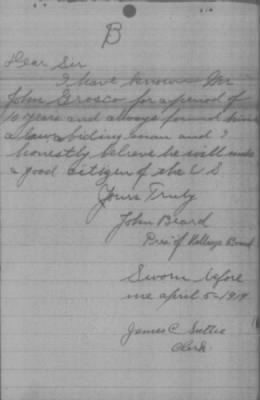 B
Dear Sir
I have known Mr
John Grosco for a period of
10 years and always found him
a law abiding man and I
honestly believe he will make
a good citizen of the U S
Yours Truly
John Beard
Pres of Village Board
Sworn before
me april 5 - 1919
James C Suttie
Clerk.